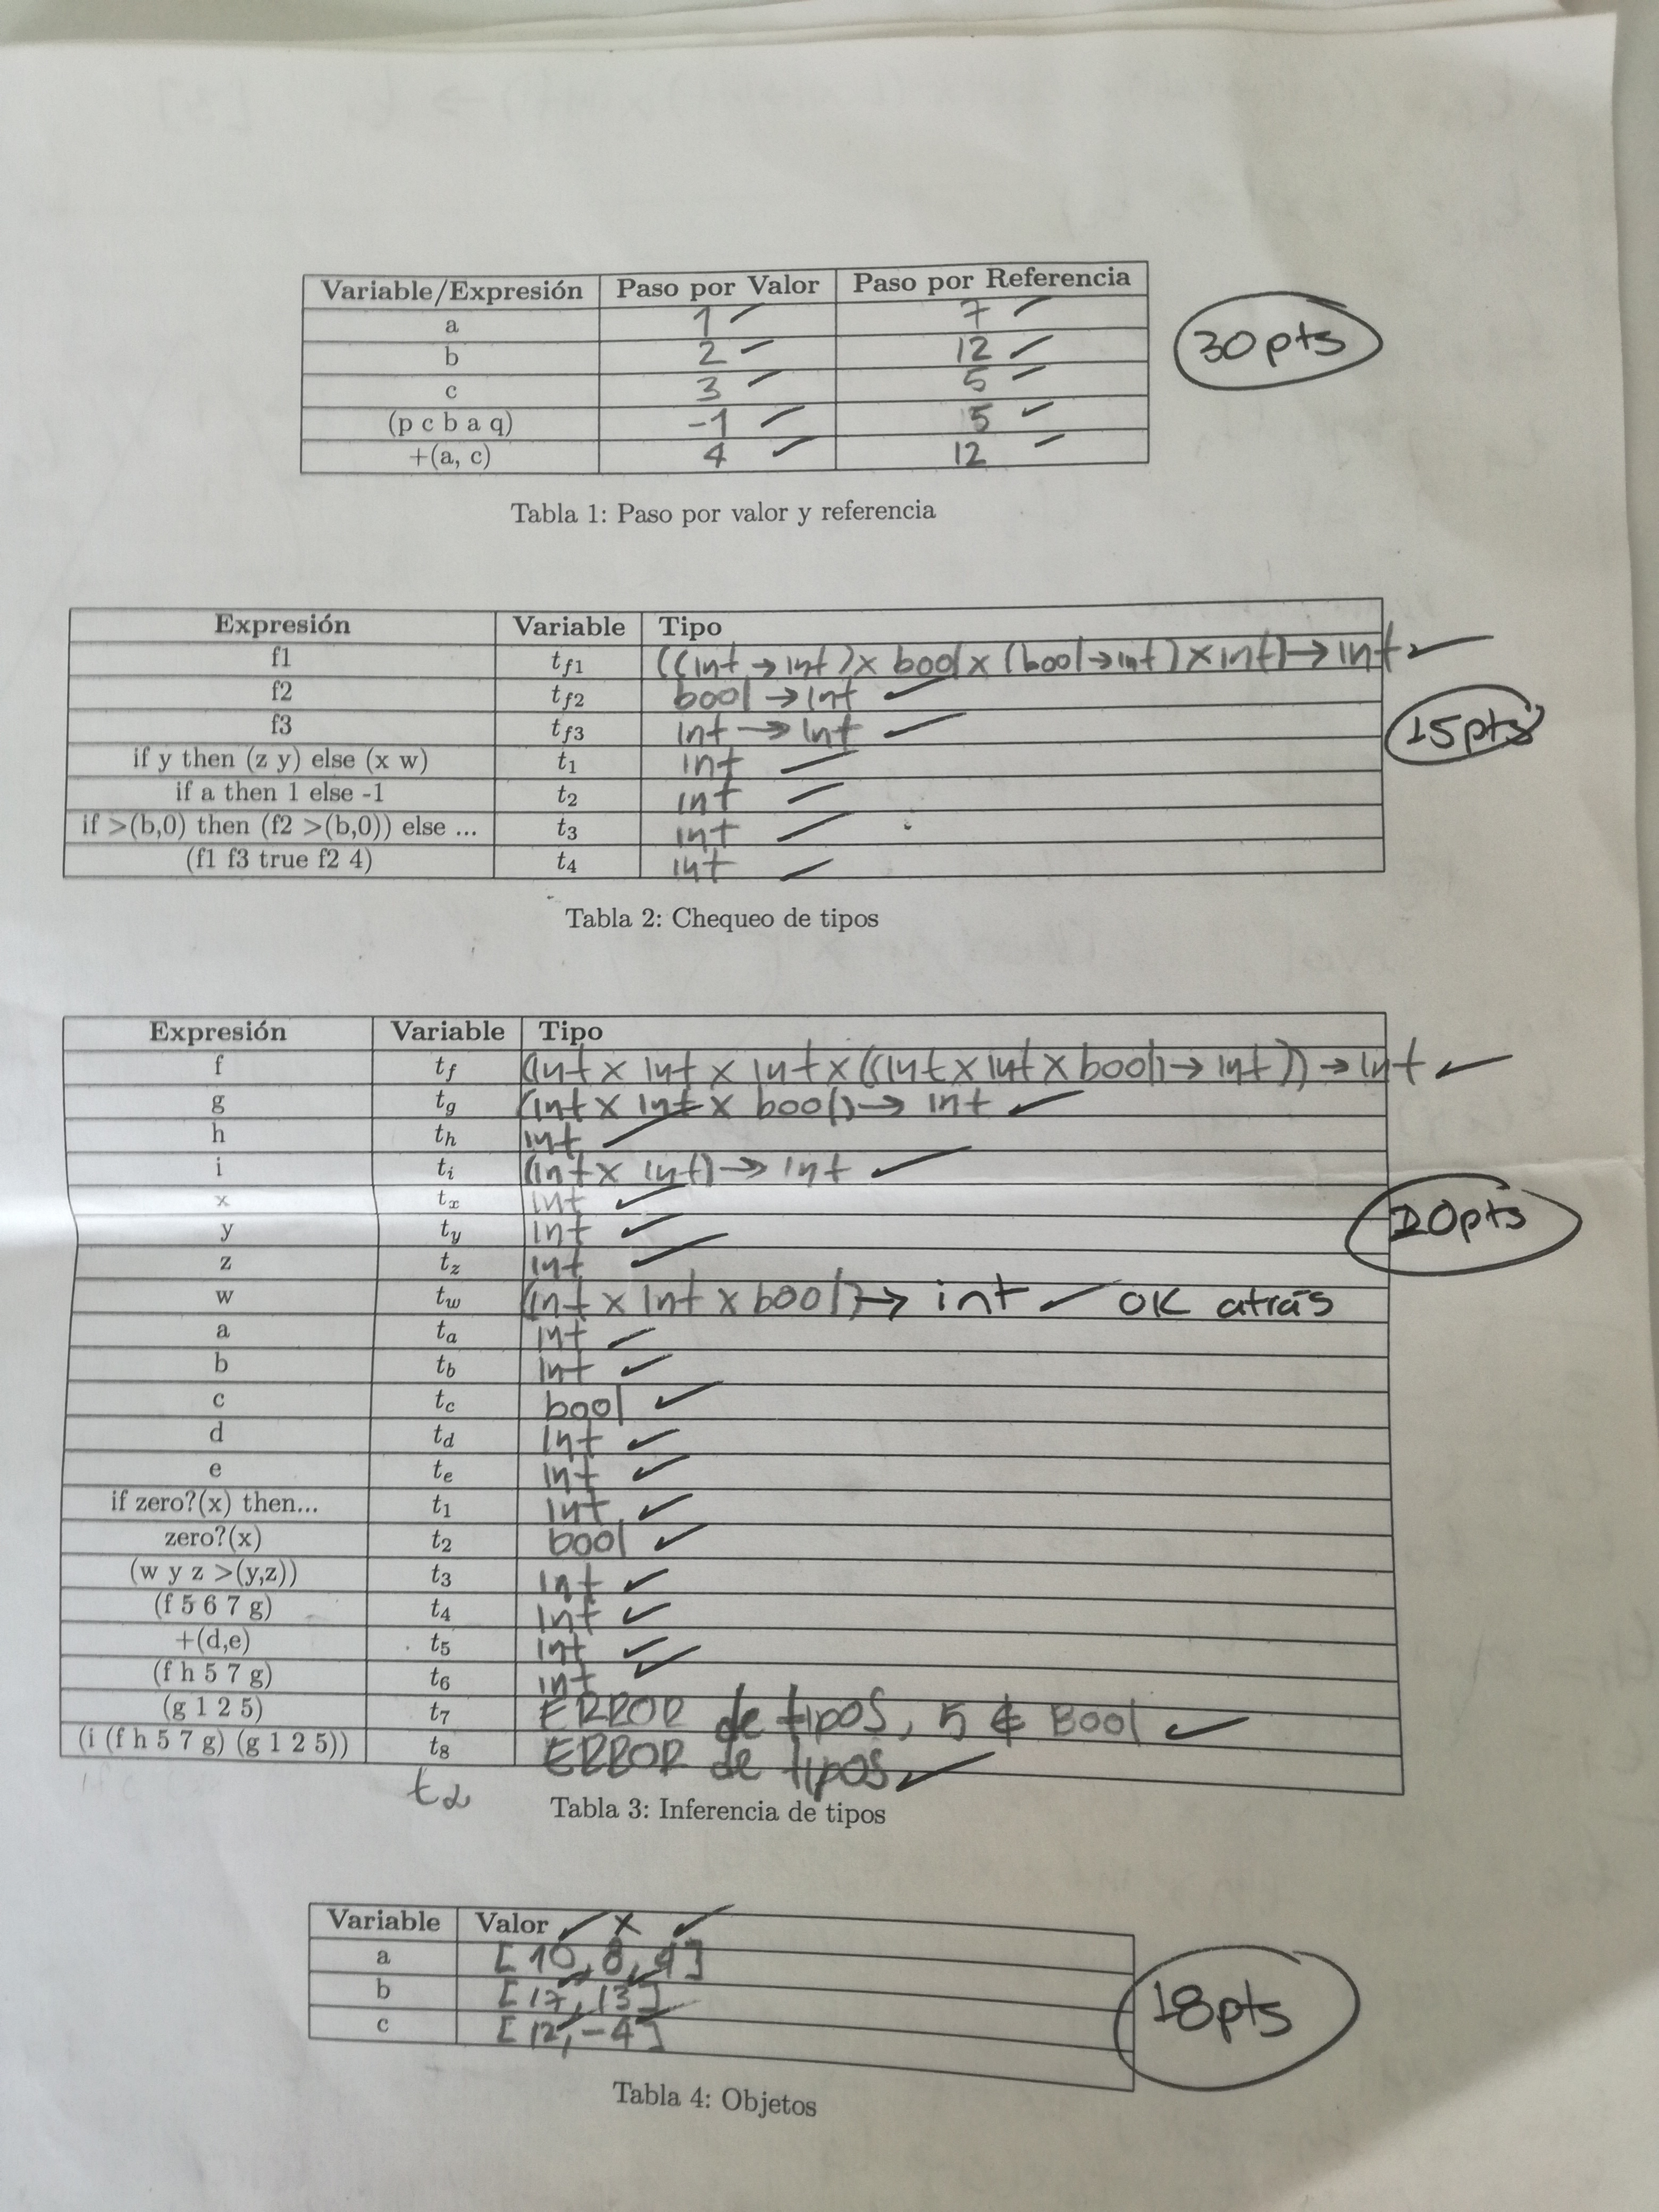 Variable/Expresión Paso por Valor Paso por Referencia
a 1 7
b 2 12
c 3 5
(p c b a q) -1 5
+(a, c) 4 12
30pts
Tabla 1: Paso por valor y referencia
Expresión Variable Tipo
f1 t_f1 ((int → int) x bool x (bool → int) x int) → int
f2 t_f2 bool → int
f3 t_f3 int → int
15pts
if y then (z y) else (x w) t_1 int
if a then 1 else -1 t_2 int
if >(b,0) then (f2 >(b,0)) else ... t_3 int
(f1 f3 true f2 4) t_4 int
Tabla 2: Chequeo de tipos
Expresión Variable Tipo
f t_f (int x int x int x ((int x int x bool) → int)) → int
g t_g (int x int x bool) → int
h t_h int
i t_i (int x int) → int
x t_x int
y t_y int
z t_z int
w t_w (int x int x bool) → int OK atrás
a t_a int
b t_b int
c t_c bool
d t_d int
e t_e int
if zero?(x) then... t_1 int
zero?(x) t_2 bool
(w y z >(y,z)) t_3 int
(f 5 6 7 g) t_4 int
+(d,e) t_5 int
(f h 5 7 g) t_6 int
(g 1 2 5) t_7 ERROR de tipos, 5 ∉ Bool
(i (f h 5 7 g) (g 1 2 5)) t_8 ERROR de tipos
Tabla 3: Inferencia de tipos
Variable Valor
a [10, 8, 9]
b [17, 13]
c [12, -4]
18pts
Tabla 4: Objetos